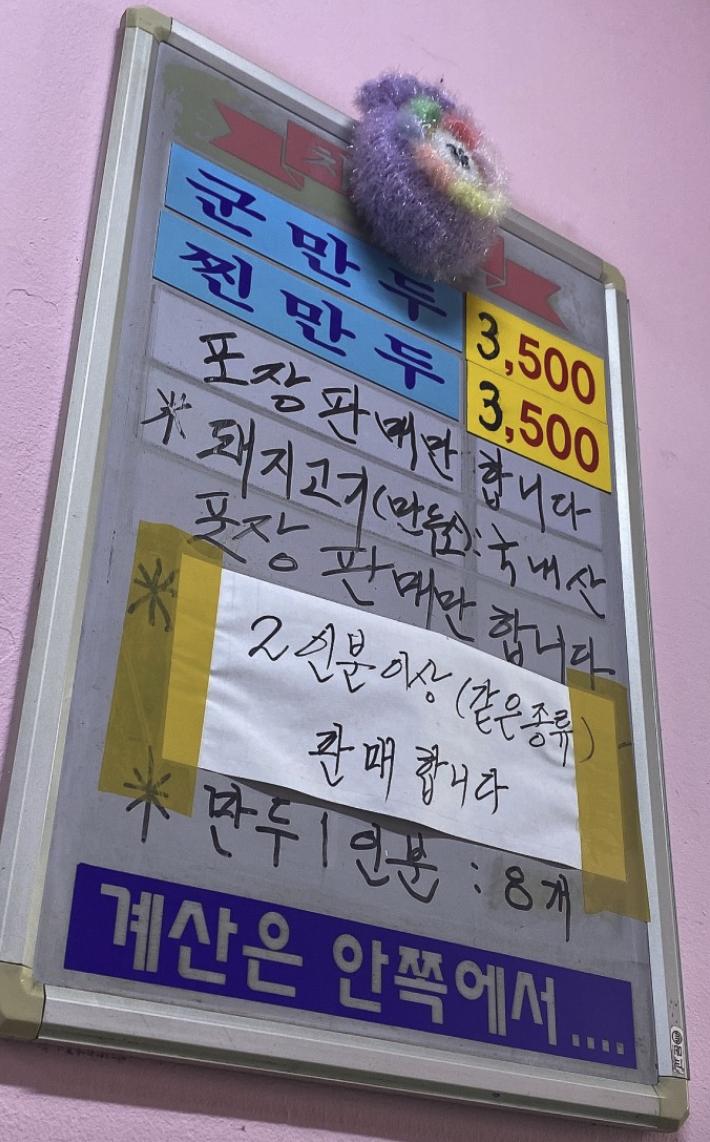 군만두 3,500
찐만두 3,500
포장판매만 합니다
* 돼지고기(만두소):국내산
포장 판매만 합니다
* 2인분이상 (같은종류)
판매 합니다
* 만두 1인분 : 8개
계산은 안쪽에서....